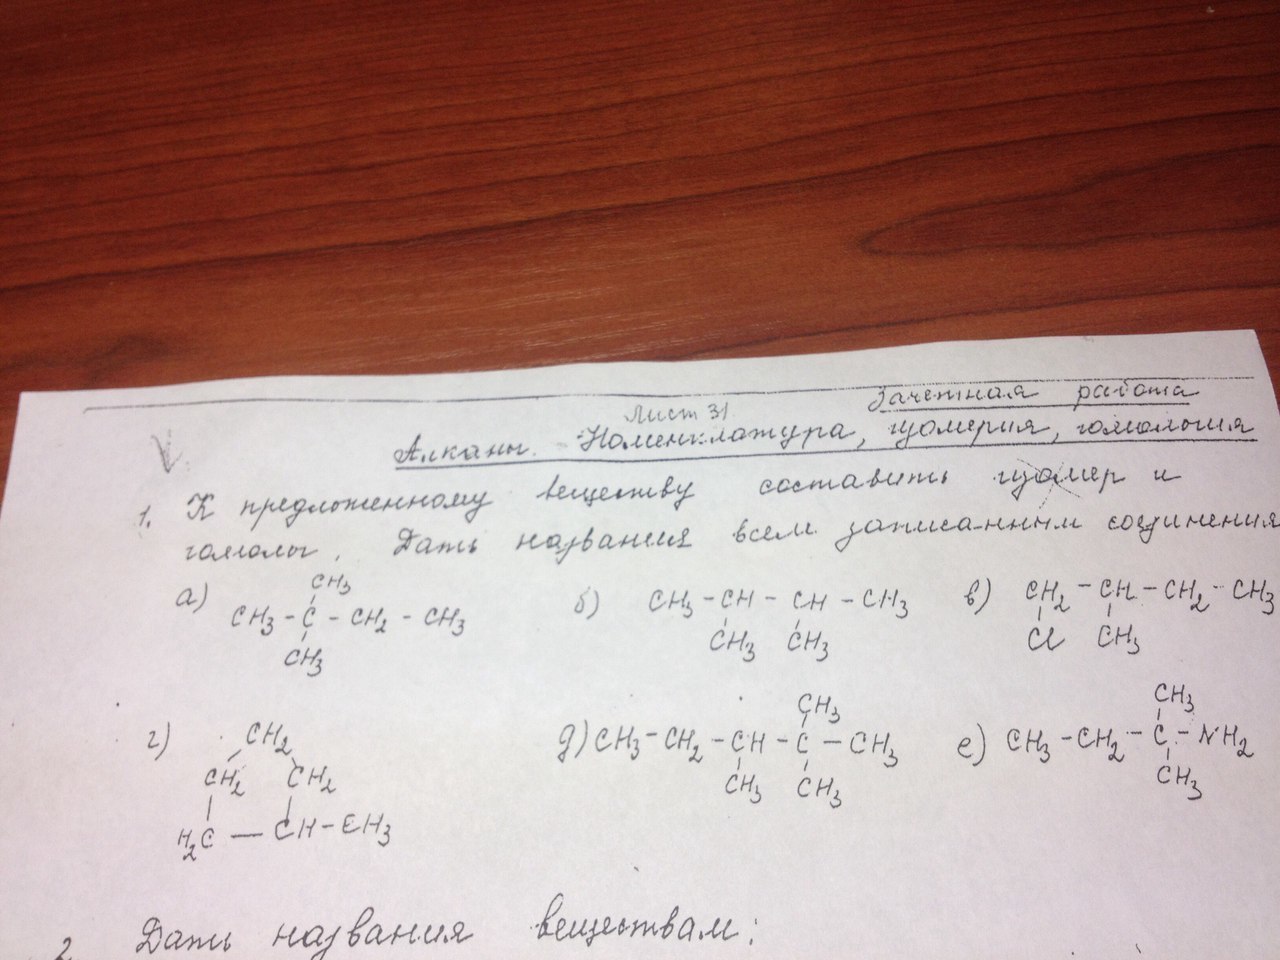 Зачетная работа
Лист 31
Алканы. Номенклатура, изомерия, гомология
1. К предложенному веществу составить изомер и
гомолог. Дать названия всем записанным соединения
а) CH3 - C - CH2 - CH3
CH3
CH3
б) CH3 - CH - CH - CH3
CH3 CH3
в) CH2 - CH - CH2 - CH3
Cl CH3
г) CH2
CH2 CH2
H2C - CH - CH3
д) CH3 - CH2 - CH - C - CH3
CH3
CH3 CH3
е) CH3 - CH2 - C - NH2
CH3
CH3
2. Дать названия веществам: